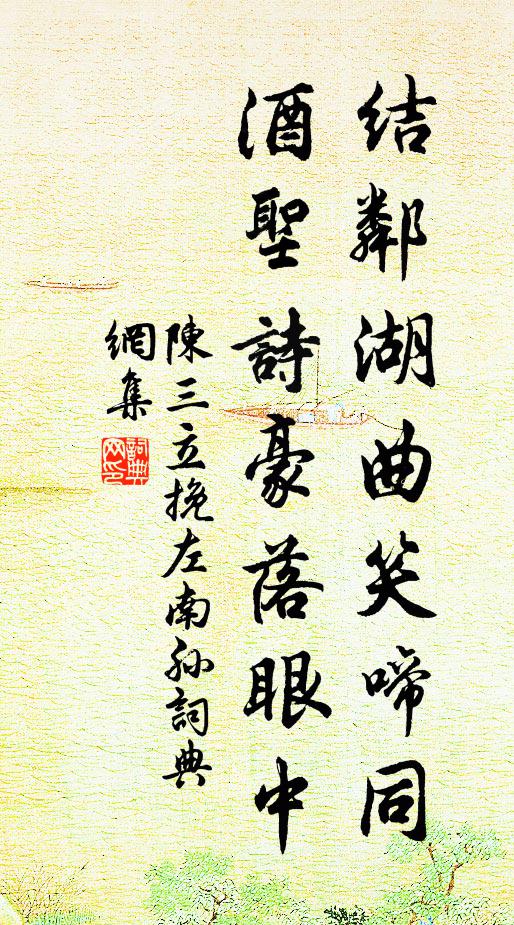 結鄰湖曲笑啼同
酒聖詩豪落眼中
陳三立挽左南孫詞典
網集
詞典
网印